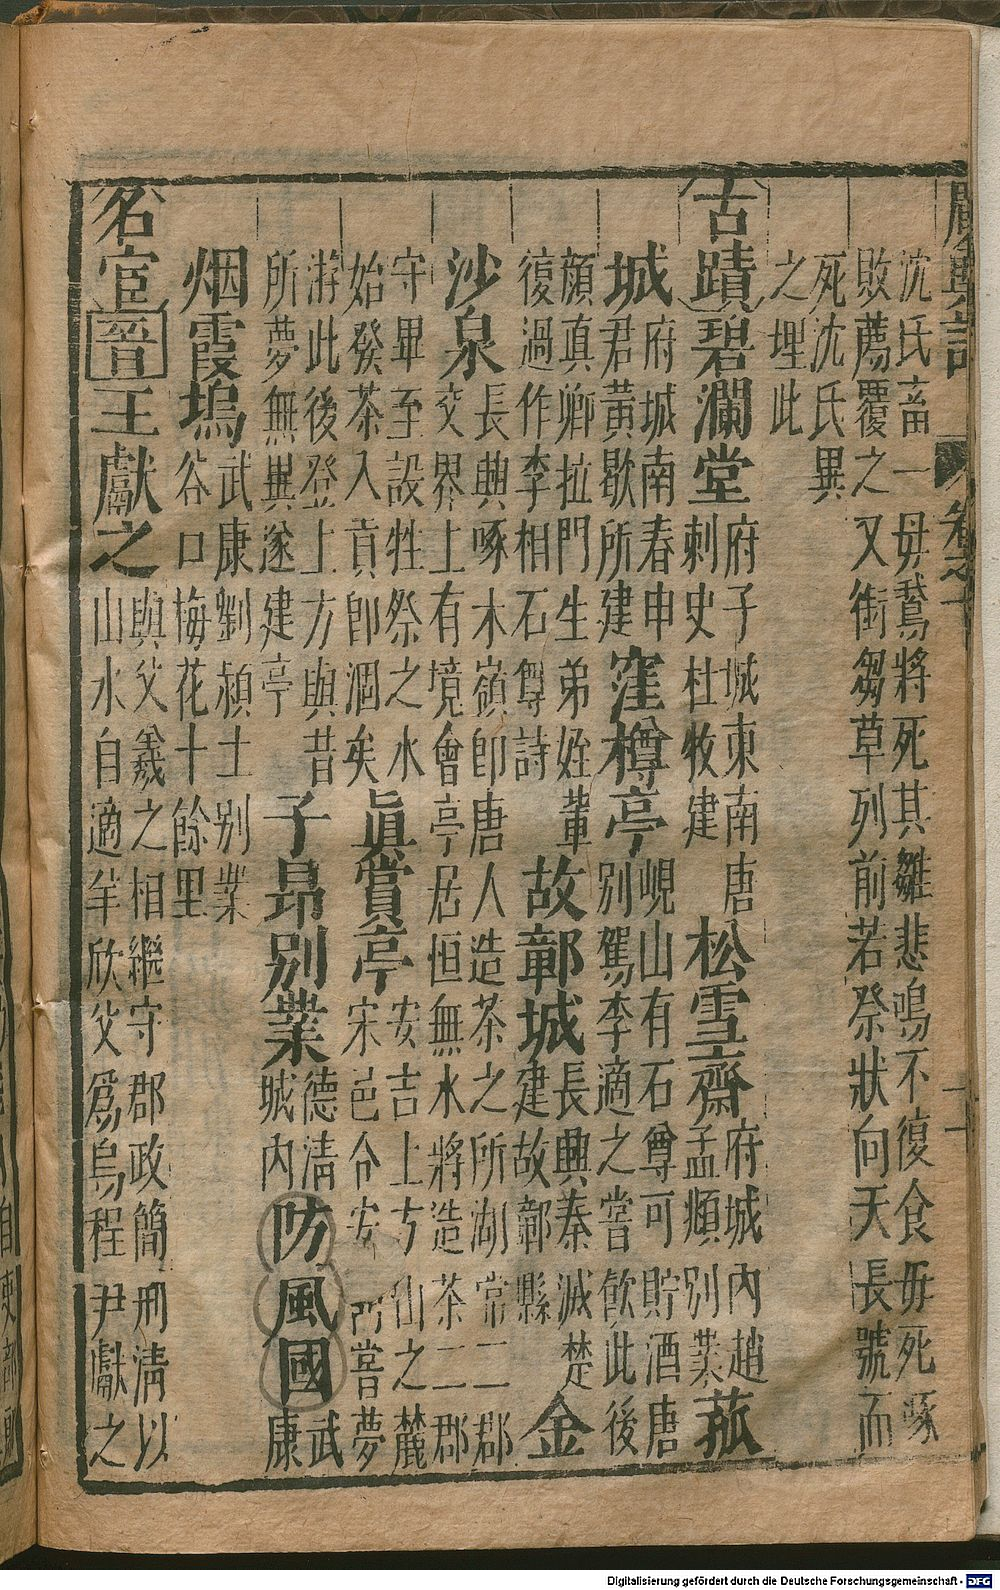 廣輿記 卷之十 十一
沈氏畜一母鵞將死其雛悲鳴不復食毋死啄
敗薦覆之又銜芻草列前若祭狀向天長號而
死沈氏異
之埋此
古蹟 碧瀾堂 府子城東南唐刺史杜牧建 松雪齋 府城內趙孟頫別業 菰
城 府城城南春申君黃歇所建 窪樽亭 峴山有石尊可貯酒唐別駕李適之嘗飲此後
顏真卿拉門生弟姪輩復過作李相石尊詩 故鄣城 長興秦滅楚建故鄣縣 金
沙泉 長興啄木嶺即唐人造茶之所湖常二郡交界上有境會亭居恒無水將造茶二郡
守畢至設牲祭之水始發茶入貢即涸矣 眞賞亭 安吉上方山之麓宋邑令安嘗夢
游此後登上方與昔所夢無異遂建亭 子昂別業 德清城內 防風國 武康
烟霞塢 武康劉熲士別業谷口梅花十餘里
名宦 晉 王獻之 與父羲之相繼守郡政簡刑清以山水自適羊欣父爲烏程尹獻之
Digitalisierung gefördert durch die Deutsche Forschungsgemeinschaft - DFG